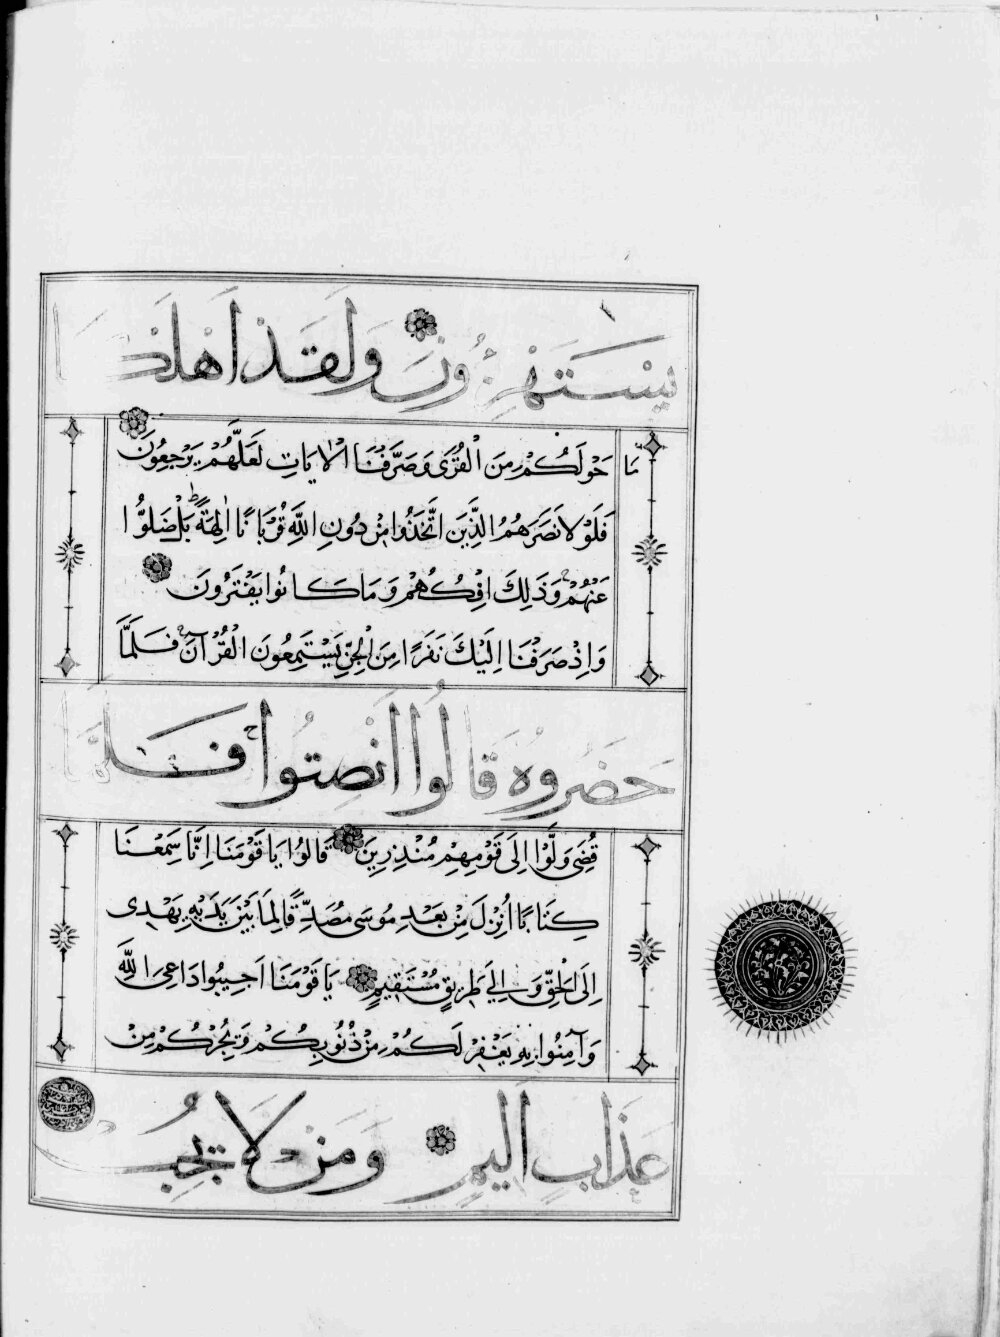 يَسْتَهْزِءُونَ وَلَقَدْ اَهْلَكْنَا
مَا حَوْلَكُمْ مِنَ الْقُرٰى وَصَرَّفْنَا الْاٰيَاتِ لَعَلَّهُمْ يَرْجِعُونَ
فَلَوْلَا نَصَرَهُمُ الَّذِينَ اتَّخَذُوا مِنْ دُونِ اللّٰهِ قُرْبَانًا اٰلِهَةً بَلْ ضَلُّوا
عَنْهُمْ وَذٰلِكَ اِفْكُهُمْ وَمَا كَانُوا يَفْتَرُونَ
وَاِذْ صَرَفْنَا اِلَيْكَ نَفَرًا مِنَ الْجِنِّ يَسْتَمِعُونَ الْقُرْآنَ فَلَمَّا
حَضَرُوهُ قَالُوا اَنْصِتُوا فَلَمَّا
قُضِيَ وَلَّوْا اِلٰى قَوْمِهِمْ مُنْذِرِينَ قَالُوا يَا قَوْمَنَا اِنَّا سَمِعْنَا
كِتَابًا اُنْزِلَ مِنْ بَعْدِ مُوسٰى مُصَدِّقًا لِمَا بَيْنَ يَدَيْهِ يَهْدِى
اِلَى الْحَقِّ وَاِلٰى طَرِيقٍ مُسْتَقِيمٍ يَا قَوْمَنَا اَجِيبُوا دَاعِىَ اللّٰهِ
وَآمِنُوا بِهِ يَغْفِرْ لَكُمْ مِنْ ذُنُوبِكُمْ وَيُجِرْكُمْ مِنْ
عَذَابٍ اَلِيمٍ وَمَنْ لَا يُجِبْ